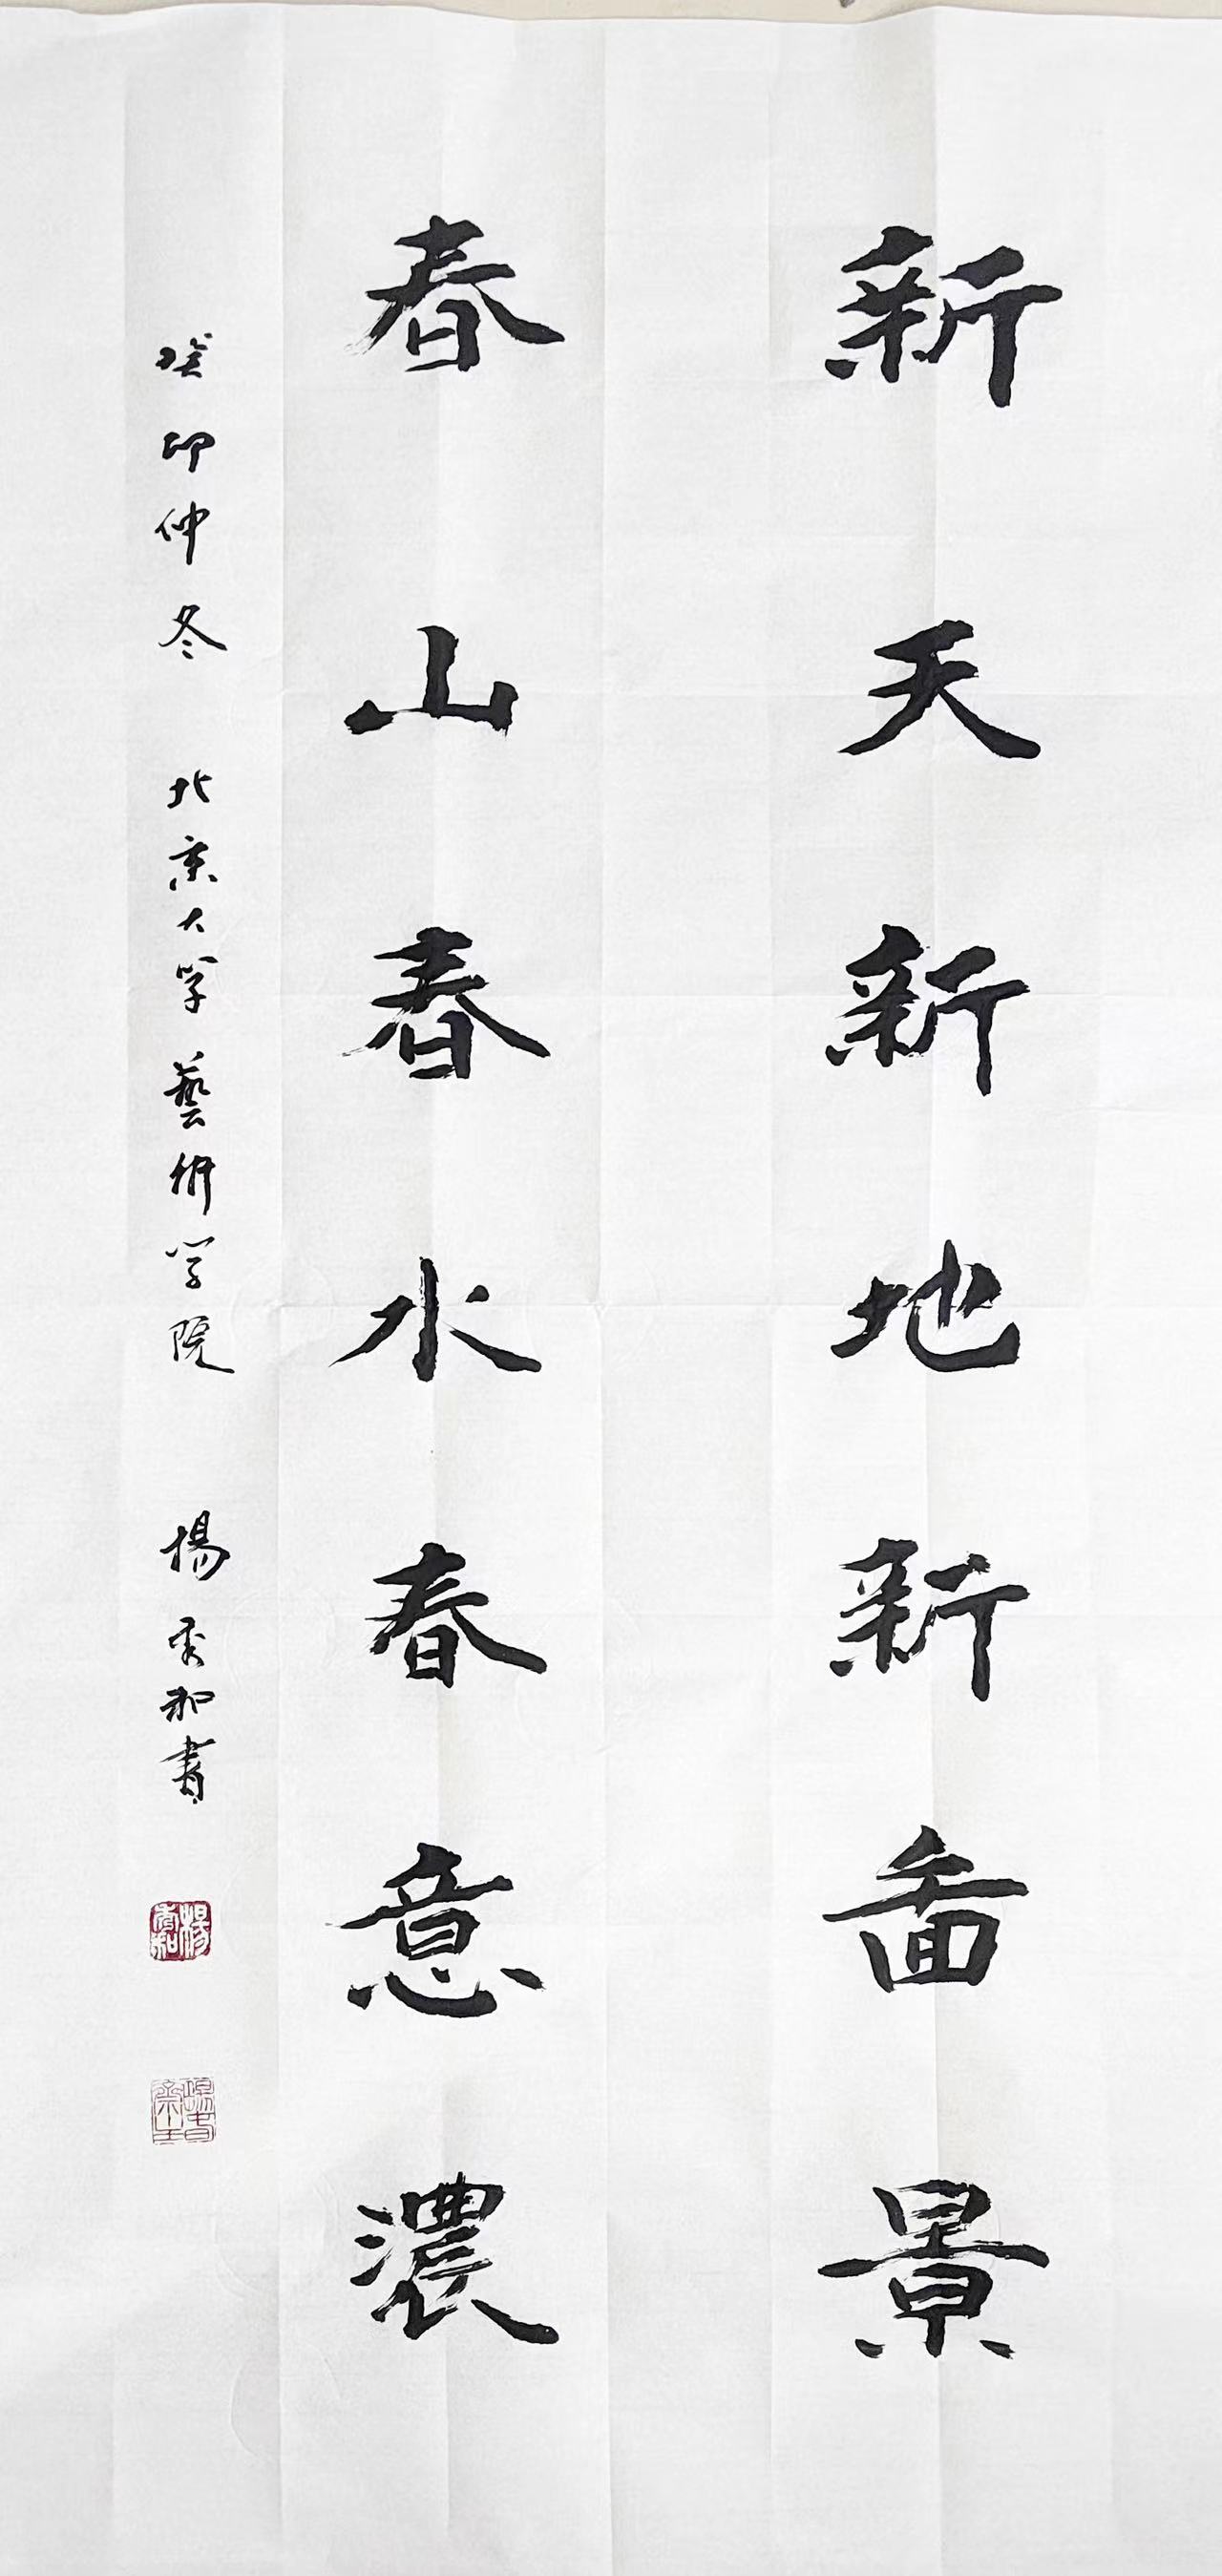 新天新地新畵景
春山春水春意濃
癸卯仲冬 北京大学藝術学院 楊秀和書